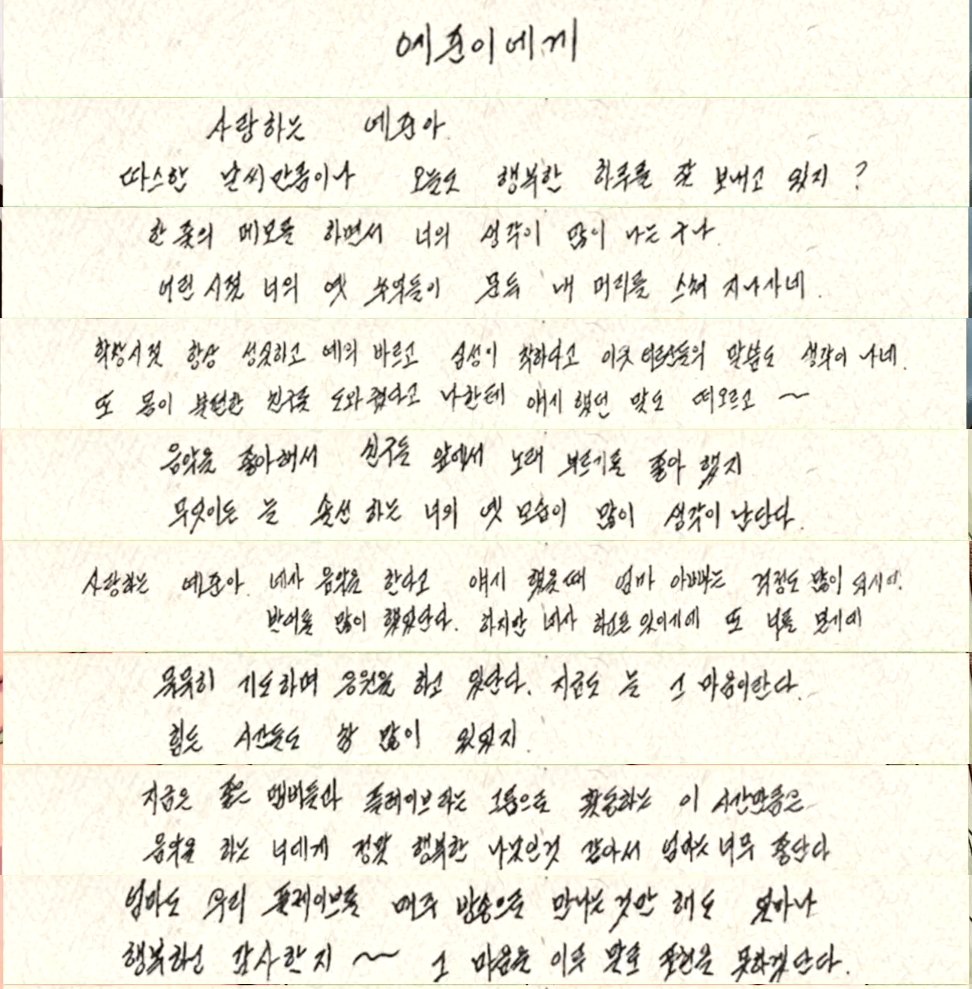 예준이에게
사랑하는 예준아.
따스한 날씨만큼이나 오늘도 행복한 하루를 잘 보내고 있지?
한 줄의 메모를 하면서 너의 생각이 많이 나는구나.
어린시절 너의 옛 추억들이 문득 내 머리를 스쳐 지나가네.
학창시절 항상 성실하고 예의 바르고 심성이 착하다고 이웃 어른들의 말씀도 생각이 나네.
또 몸이 불편한 친구를 도와줬다고 나한테 얘기했던 말도 떠오르고 ~
음악을 좋아해서 친구들 앞에서 노래 부르기를 좋아 했지
무엇이든 늘 솔선 하는 너의 옛 모습이 많이 생각이 난단다.
사랑하는 예준아. 네가 음악을 한다고 얘기 했을때 엄마 아빠는 걱정도 많이 되시어.
반대를 많이 했었단다. 하지만 네가 하고픈 일이기에 또 너를 믿기에
묵묵히 기도하며 응원을 하고 있단다. 지금도 늘 그 마음이란다.
힘든 시간들도 참 많이 있었지.
지금은 좋은 멤버들과 플레이브라는 그룹으로 활동하는 이 시간만큼은
음악을 하는 너에게 정말 행복한 나날인것 같아서 엄마는 너무 좋단다
엄마도 우리 플레이브를 매주 방송으로 만나는것만 해도 얼마나
행복하고 감사한지 ~ 그 마음을 이루 말로 표현을 못하겠단다.